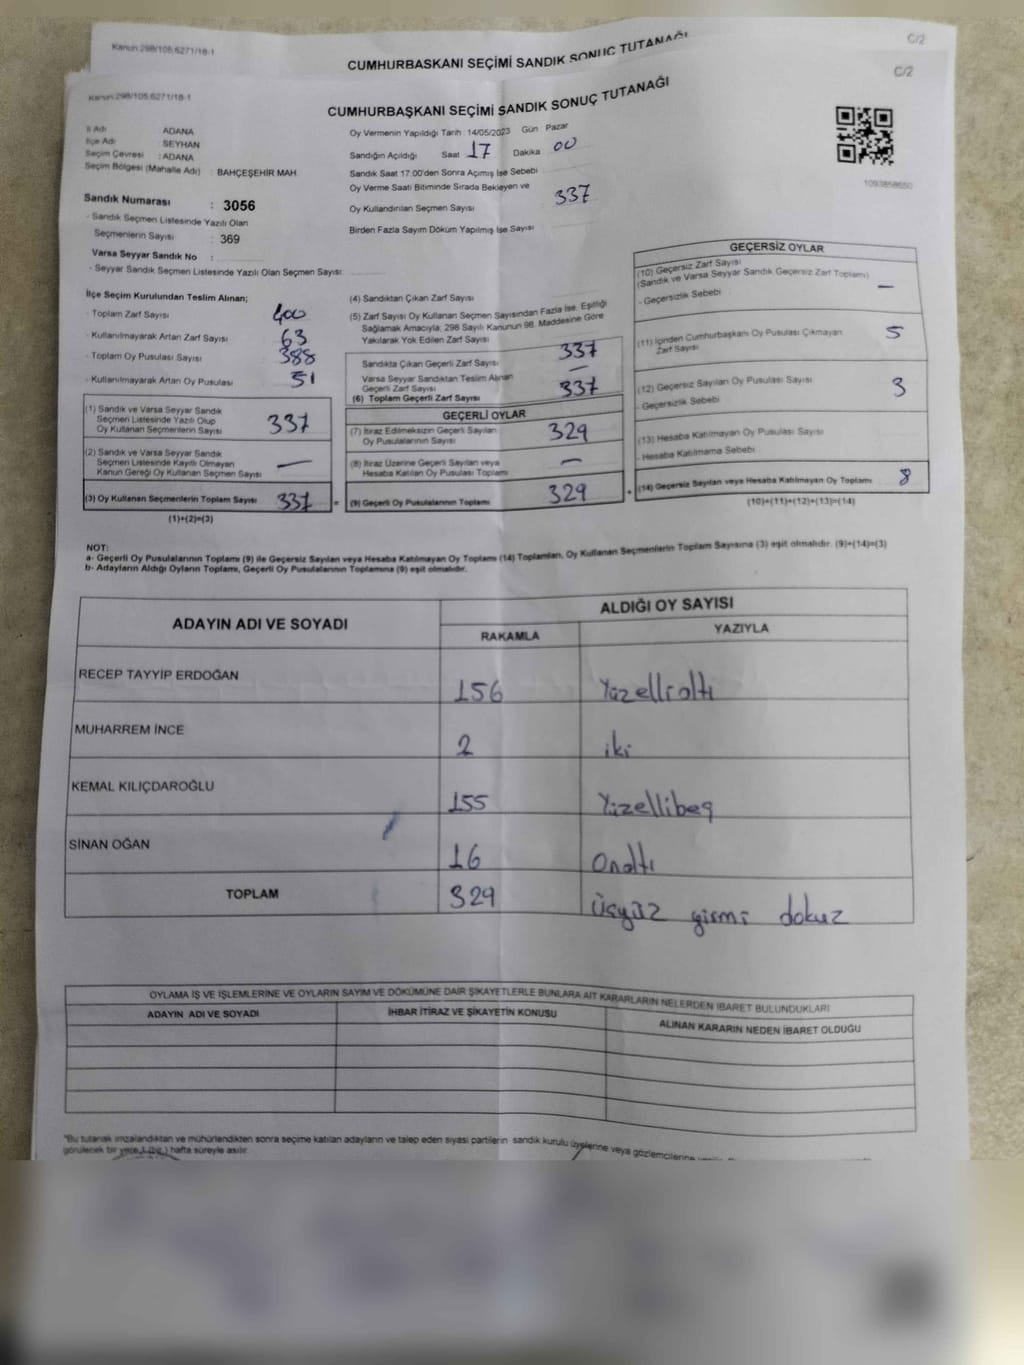 Kanun:298/105;6271/18-1
C/2
CUMHURBAŞKANI SEÇİMİ SANDIK SONUÇ TUTANAĞI
Kanun:298/105;6271/18-1
C/2
CUMHURBAŞKANI SEÇİMİ SANDIK SONUÇ TUTANAĞI
İl Adı ADANA
İlçe Adı SEYHAN
Seçim Çevresi : ADANA
Seçim Bölgesi (Mahalle Adı) : BAHÇEŞEHİR MAH
Oy Vermenin Yapıldığı Tarih :14/05/2023 Gün Pazar
Sandığın Açıldığı Saat 17 Dakika 00
Sandık Saat 17.00'den Sonra Açımış İse Sebebi
Oy Verme Saati Bitiminde Sırada Bekleyen ve
Oy Kullandırılan Seçmen Sayısı 337
Birden Fazla Sayım Döküm Yapılmış İse Sayısı
1093858650
Sandık Numarası : 3056
- Sandık Seçmen Listesinde Yazılı Olan
Seçmenlerin Sayısı : 369
Varsa Seyyar Sandık No :
- Seyyar Sandık Seçmen Listesinde Yazılı Olan Seçmen Sayısı:
İlçe Seçim Kurulundan Teslim Alınan;
- Toplam Zarf Sayısı 400
- Kullanılmayarak Artan Zarf Sayısı 63
- Toplam Oy Pusulası Sayısı 388
- Kullanılmayarak Artan Oy Pusulası 51
(1) Sandık ve Varsa Seyyar Sandık
Seçmen Listesinde Yazılı Olup
Oy Kullanan Seçmenlerin Sayısı 337
(2) Sandık ve Varsa Seyyar Sandık
Seçmen Listesinde Kayıtlı Olmayan
Kanun Gereği Oy Kullanan Seçmen Sayısı —
(3) Oy Kullanan Seçmenlerin Toplam Sayısı 337 =
(1)+(2)=(3)
(4) Sandıktan Çıkan Zarf Sayısı
(5) Zarf Sayısı Oy Kullanan Seçmen Sayısından Fazla İse, Eşitliği
Sağlamak Amacıyla; 298 Sayılı Kanunun 98. Maddesine Göre
Yakılarak Yok Edilen Zarf Sayısı
Sandıkta Çıkan Geçerli Zarf Sayısı 337
Varsa Seyyar Sandıktan Teslim Alınan
Geçerli Zarf Sayısı —
(6) Toplam Geçerli Zarf Sayısı 337
GEÇERLİ OYLAR
(7) İtiraz Edilmeksizin Geçerli Sayılan
Oy Pusulalarının Sayısı 329
(8) İtiraz Üzerine Geçerli Sayılan veya
Hesaba Katılan Oy Pusulası Toplamı —
(9) Geçerli Oy Pusulalarının Toplamı 329 +
GEÇERSİZ OYLAR
(10) Geçersiz Zarf Sayısı
(Sandık ve Varsa Seyyar Sandık Geçersiz Zarf Toplamı) —
- Geçersizlik Sebebi
(11) İçinden Cumhurbaşkanı Oy Pusulası Çıkmayan
Zarf Sayısı 5
(12) Geçersiz Sayılan Oy Pusulası Sayısı 3
- Geçersizlik Sebebi
(13) Hesaba Katılmayan Oy Pusulası Sayısı
- Hesaba Katılmama Sebebi
(14) Geçersiz Sayılan veya Hesaba Katılmayan Oy Toplamı 8
(10)+(11)+(12)+(13)=(14)
NOT:
a- Geçerli Oy Pusulalarının Toplamı (9) ile Geçersiz Sayılan veya Hesaba Katılmayan Oy Toplamı (14) Toplamları, Oy Kullanan Seçmenlerin Toplam Sayısına (3) eşit olmalıdır. (9)+(14)=(3)
b- Adayların Aldığı Oyların Toplamı, Geçerli Oy Pusulalarının Toplamına (9) eşit olmalıdır.
ADAYIN ADI VE SOYADI ALDIĞI OY SAYISI
RAKAMLA YAZIYLA
RECEP TAYYİP ERDOĞAN 156 Yüzellialtı
MUHARREM İNCE 2 iki
KEMAL KILIÇDAROĞLU 155 Yüzellibeş
SİNAN OĞAN 16 Onaltı
TOPLAM 329 Üçyüz yirmi dokuz
OYLAMA İŞ VE İŞLEMLERİNE VE OYLARIN SAYIM VE DÖKÜMÜNE DAİR ŞİKAYETLERLE BUNLARA AİT KARARLARIN NELERDEN İBARET BULUNDUKLARI
ADAYIN ADI VE SOYADI İHBAR İTİRAZ VE ŞİKAYETİN KONUSU ALINAN KARARIN NEDEN İBARET OLDUĞU
"Bu tutanak imzalandıktan ve mühürlendikten sonra seçime katılan adayların ve talep eden siyasi partilerin sandık kurulu üyelerine veya gözlemcilerine
görülecek bir yere 1 (bir) hafta süreyle asılır.